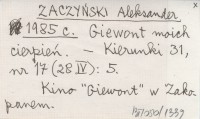 x
ZACZYŃSKI Aleksander
1985 r. Giewont moich
cierpień. - Kierunki 31,
nr 17 (28 IV): 5.
Kino "Giewont" w Zako-
panem.